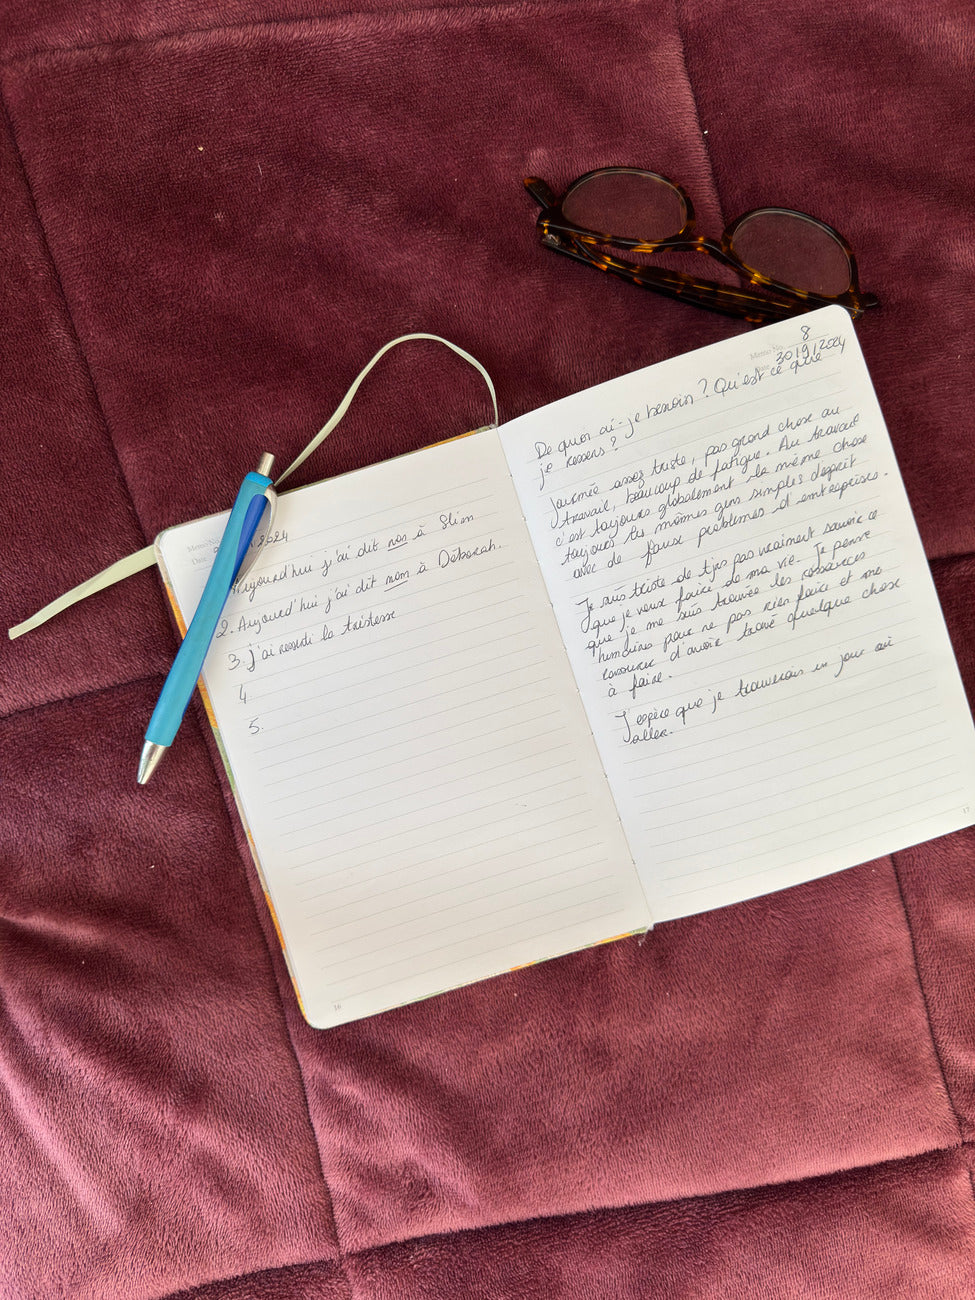 Memo No.
2024
Aujourd'hui j'ai dit non à Stien
2. Aujourd'hui j'ai dit non à Déborah.
3. j'ai ressenti la tristesse
4
5.
16
Memo No. 8
Date 30/9/2024
De quoi ai-je besoin ? Qu'est ce que
je ressens ?
Journée assez triste, pas grand chose au
travail, beaucoup de fatigue. Au travail
c'est toujours globalement la même chose
toujours les mêmes gens simples d'esprit
avec de faux problèmes d'entreprises.
Je suis triste de tjrs pas vraiment savoir ce
que je veux faire de ma vie. Je pense
que je me suis trouvée les ressources
humaines pour ne pas rien faire et me
rassurer d'avoir trouvé quelque chose
à faire.
J'espère que je trouverais un jour où
aller.
17